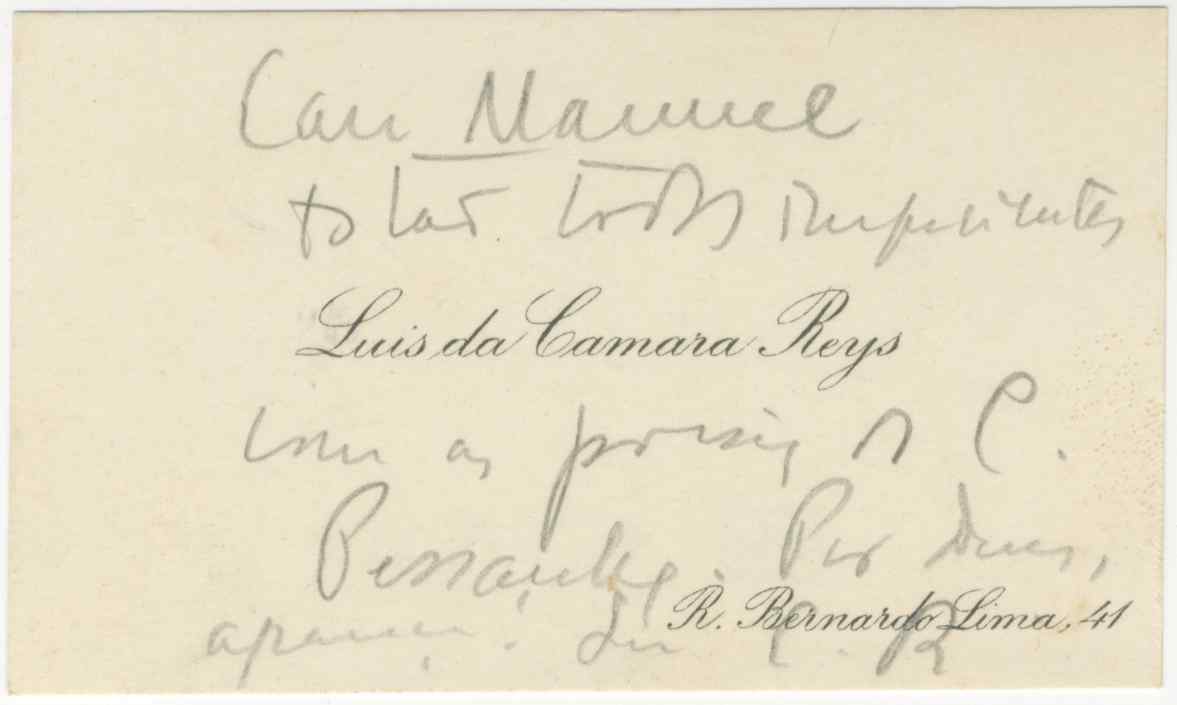 Caro Manuel
estão todos impacientes
Luis da Camara Reys
com as poesias do C.
Pessanha. Por Deus,
apareça. Seu C. R.
R. Bernardo Lima, 41